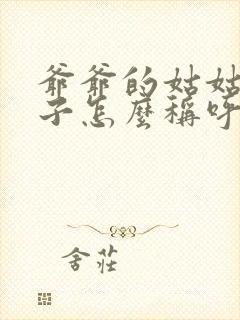 爺爺的姑姑
子怎麼稱呼
舍莊